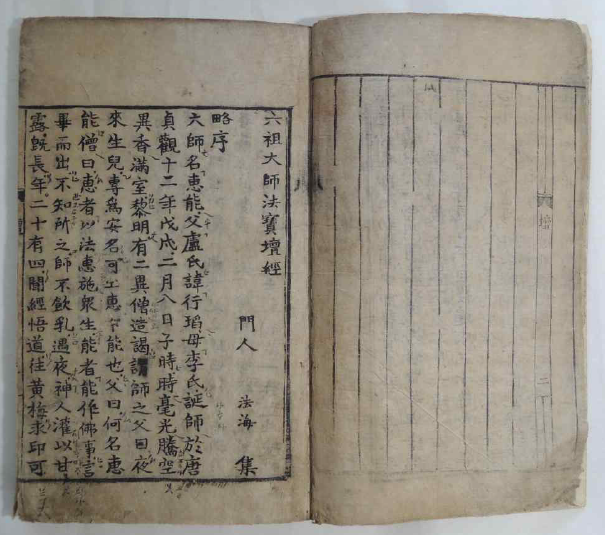 六祖大師法寶壇經
門人 法海 集
略序
大師名惠能父盧氏諱行瑫母李氏誕師於唐
貞觀十二年戊戌二月八日子時時毫光騰空
異香滿室黎明有二異僧造謁師之父曰夜
來生兒專爲安名可上惠下能也父曰何名惠
能僧曰惠者以法惠施衆生能者能作佛事言
畢而出不知所之師不飲乳遇夜神人灌以甘
露旣長年二十有四聞經悟道往黃梅求印可